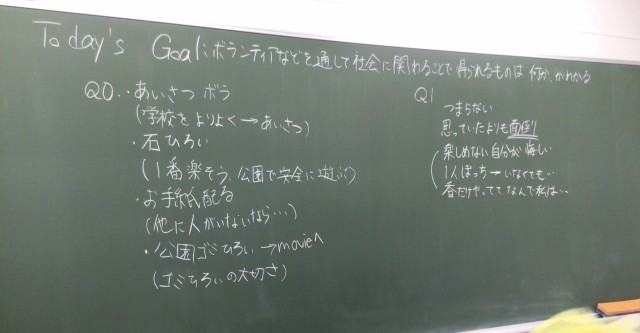 Today's Goal:ボランティアなどを通して社会に関わることで得られるものは何か、がわかる
Q0.・あいさつ ボラ
(学校をよりよく→あいさつ)
・石ひろい
(1番楽そう、公園で安全に遊ぶ)
・お手紙配る
(他に人がいないなら…)
・公園ゴミひろい→movieへ
(ゴミひろいの大切さ)
Q1
つまらない
思っていたよりも面倒
楽しめない自分が悔しい
1人ぼっち→いなくても…
春だけやっててなんで私は…